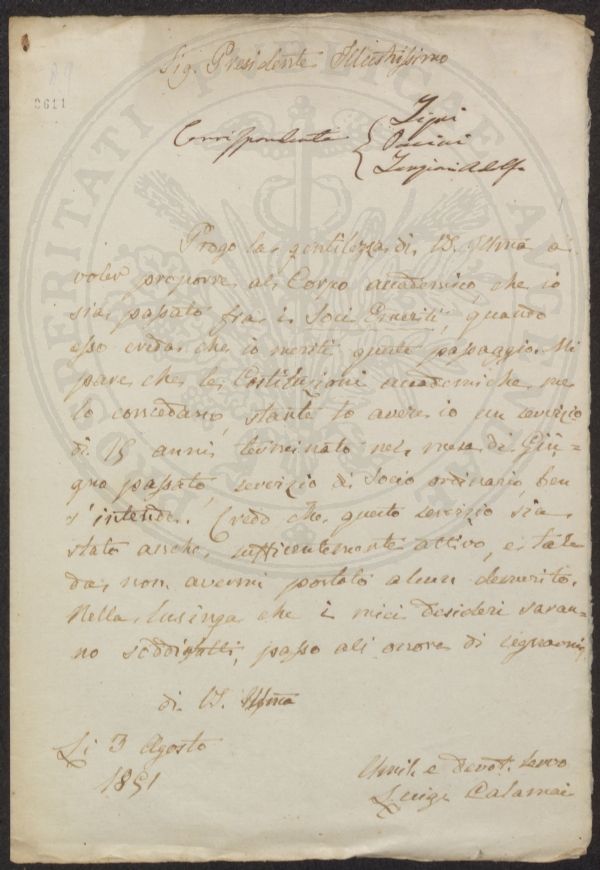 Sig. Presidente Illustrissimo
2611
Corrispondenti
Pacini
Prego la gentilezza di V.S. Illma a
voler proporre al Corpo accademico che io
sia passato fra i Soci Emeriti, quando
esso creda che io meriti questo passaggio. Mi
pare che le Costituzioni accademiche me
lo concedano, stante lo avere io un servizio
di 15 anni terminato nel mese di Giu-
gno passato, servizio di Socio ordinario, ben
s'intende. Credo che questo servizio sia
stato anche sufficientemente attivo, e tale
da non avermi portato alcun demerito.
Nella lusinga che i miei desideri saran-
no soddisfatti, passo all onore di segnarmi
di V.S. Illma
Li 3 Agosto
1851
Umil. e devot. servo
Luigi Calamai
PROSPERITATI PUBLICAE AUGENDAE